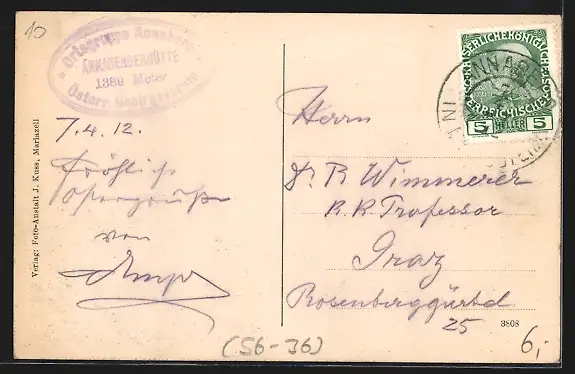 10
Ortsgruppe Annaberg
ANNABERGERHÜTTE
1389 Meter
Österr. Gebirgsverein
7.4.12.
Fröhliche
Ostergrüße
von
Verlag: Foto-Anstalt J. Kuss, Mariazell
KAISERLICHE KÖNIGLICHE
ÖSTERREICHISCHE
5 HELLER 5
ANNABERG
Herrn
Dr. R Wimmerer
K. K. Professor
Graz
Rosenberggürtel
25
3808
(56-36)
6,-